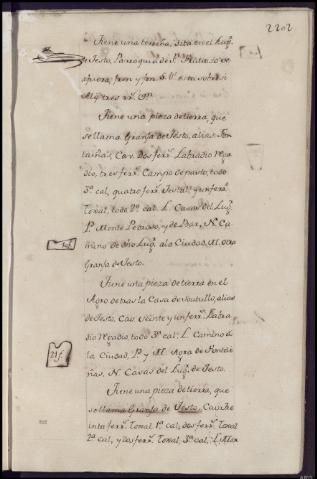 2202
Tiene una terreña, sita en el Lug.
de Sesto, Parroquia de Sn.
Alq. tres rr. vn.
Tiene una pieza de tierra, que
se llama Granja de Sesto, alias Fon
taiñas, Cav. dos ferr. Labradío rega
dío, tres ferr. Campo de pasto, todo
3ª cal, quatro ferr. y un ferr.
Toxal, todo 2ª cal. L. Casas del Lug.
P. Monte N. Ca
mino de dho Lug. a la Ciudad, M. otra
Granja de Sesto.
Tiene una pieza de tierra en el
Agro detras la Casa de alias
de Sesto, Cav. veinte y un ferr. Labra
dío regadío, todo 3ª cal. L. Camino a
la Ciudad, P. y M. Agra de Fontai
ñas, N. Casas del Lug. de Sesto.
Tiene una pieza de tierra, que
se llama Granja de Sesto, Cav. tre
inta ferr. Toxal 1ª cal, dos ferr. Toxal
2ª cal, y dos ferr. Toxal, 3ª cal, L. Mon
21 f.